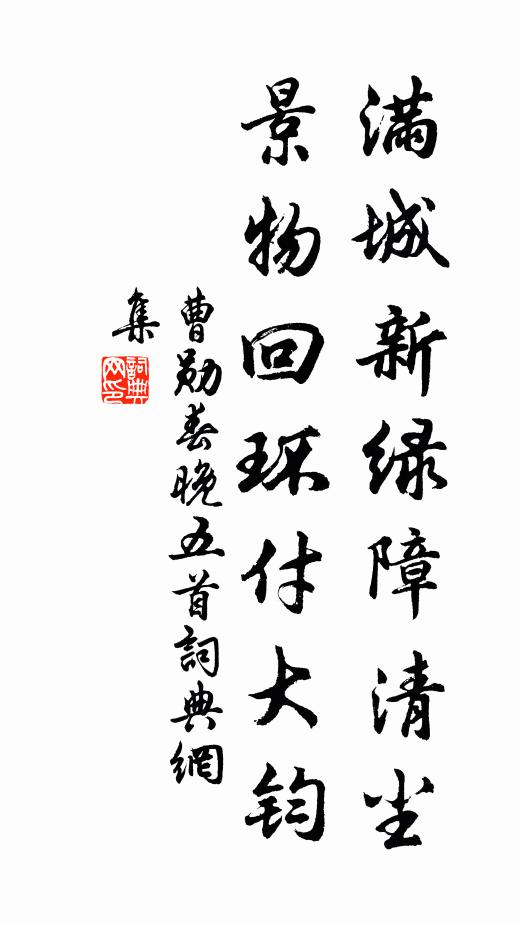 滿城新緑障清尘
景物回环付大钧
曹勋春晚五首詞典網
集
詞典网印